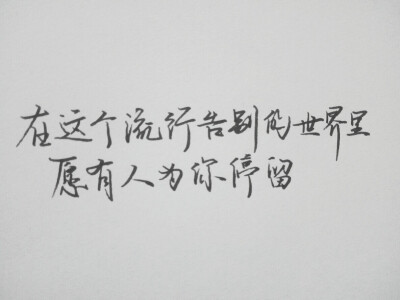 在这个流行告别的世界里
愿有人为你停留